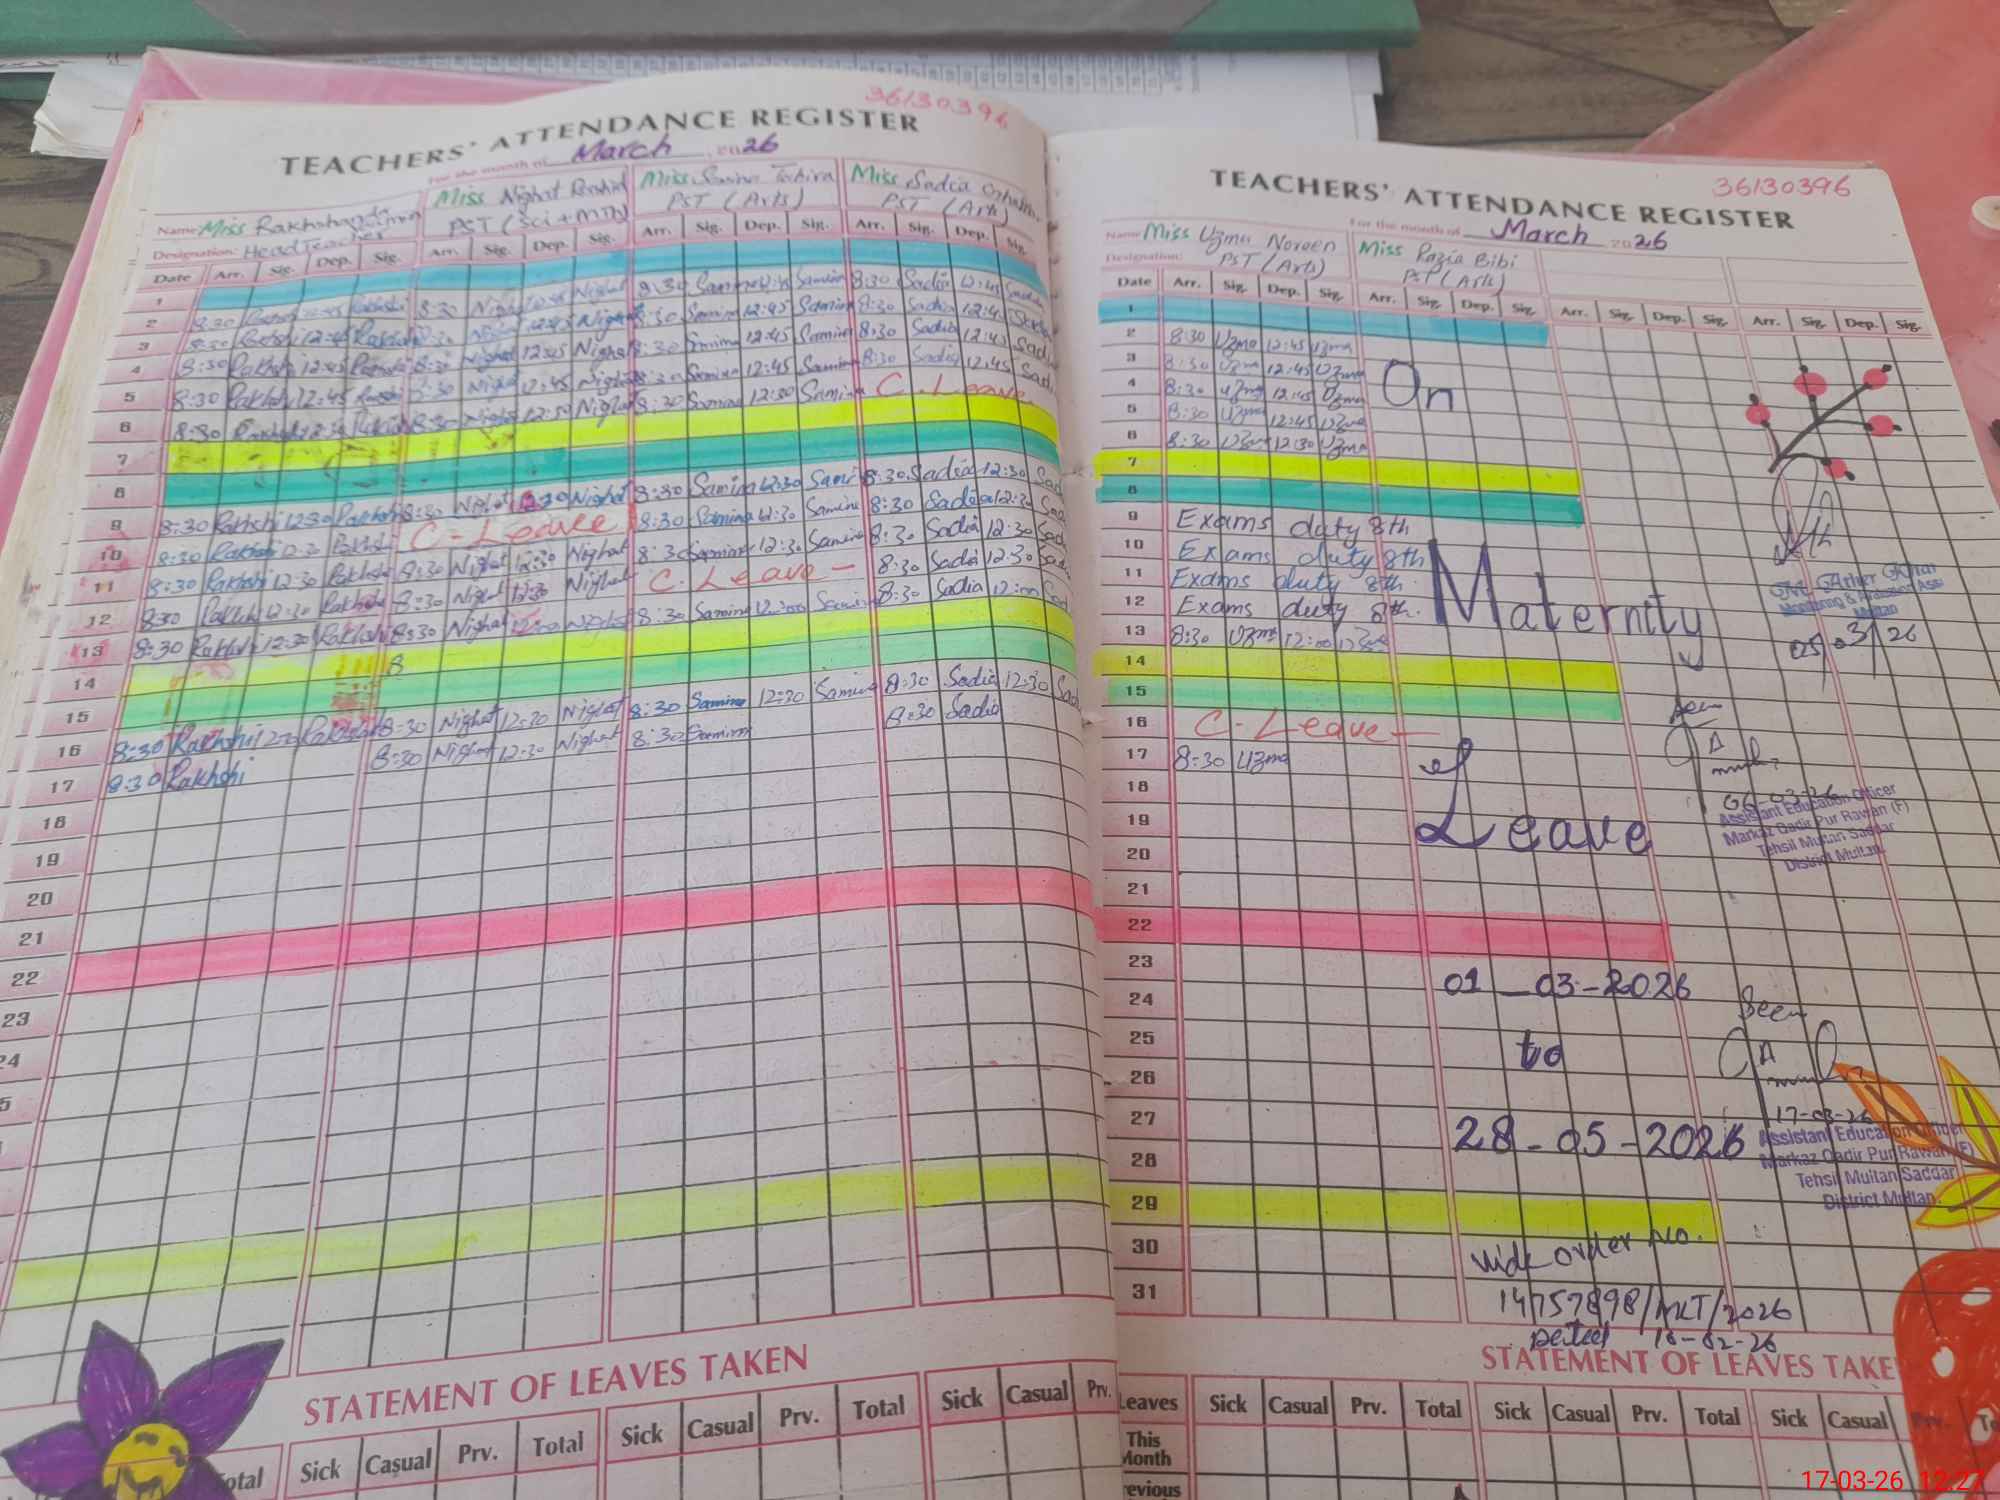 36130396
TEACHERS' ATTENDANCE REGISTER
For the month of March 2026
Name: Miss Rakhshanda
Miss Nighat Rashid
Miss Samina Tahira
Miss Sadia
Designation: Head Teacher
PST (Sci+Mth)
PST (Arts)
PST (Arts)
Date Arr. Sig. Dep. Sig. Arr. Sig. Dep. Sig. Arr. Sig. Dep. Sig. Arr. Sig. Dep. Sig.
1
2 8:30 12:45 8:30 Nighat 12:45 Nighat 8:30 Samina 12:45 Samina 8:30 Sadia 12:45
3 8:30 Rakhshi 12:45 Rakhshi 8:30 Nighat 12:45 Nighat 8:30 Samina 12:45 Samina 8:30 Sadia 12:45
4 8:30 Rakhshi 12:45 Rakhshi 8:30 Nighat 12:45 Nighat 8:30 Samina 12:45 Samina 8:30 Sadia 12:45 Sadia
5 8:30 Rakhshi 12:45 Rakhshi 8:30 Nighat 12:45 Nighat 8:30 Samina 12:45 Samina 8:30 Sadia 12:45 Sadi
6 8:30 Rakhshi 12:30 8:30 Nighat 12:30 Nighat 8:30 Samina 12:30 Samina C. Leave
7
8
9 8:30 Rakhshi 12:30 Rakhshi 8:30 Nighat 12:30 Nighat 8:30 Samina 12:30 Sami 8:30 Sadia 12:30 Sad
10 8:30 Rakhshi 12:30 Rakhshi C-Leave 8:30 Samina 12:30 Samina 8:30 Sadia 12:30 Sad
11 8:30 Rakhshi 12:30 Rakhshi 8:30 Nighat 12:30 Nighat 8:30 Samina 12:30 Samina 8:30 Sadia 12:30 Sad
12 8:30 Rakhshi 12:30 Rakhshi 8:30 Nighat 12:30 Nighat C. Leave - 8:30 Sadia 12:30 Sad
13 8:30 Rakhshi 12:30 Rakhshi 8:30 Nighat 12:00 Nighat 8:30 Samina 12:00 Samina 8:30 Sadia 12:00 Sad
14 8
15
16 8:30 Rakhshi 12:30 Rakhshi 8:30 Nighat 12:30 Nighat 8:30 Samina 12:30 Samina 8:30 Sadia 12:30 Sad
17 8:30 Rakhshi 8:30 Nighat 12:30 Nighat 8:30 Samina 8:30 Sadia
18
19
20
21
22
23
24
5
STATEMENT OF LEAVES TAKEN
otal Sick Casual Prv. Total Sick Casual Prv. Total Sick Casual Prv.
36130396
TEACHERS' ATTENDANCE REGISTER
For the month of March 2026
Name: Miss Uzma Noreen
Miss Razia Bibi
Designation: PST (Arts)
PST (Arts)
Date Arr. Sig. Dep. Sig. Arr. Sig. Dep. Sig. Arr. Sig. Dep. Sig. Arr. Sig. Dep. Sig.
1
2 8:30 Uzma 12:45 Uzma
3 8:30 Uzma 12:45 Uzma
4 8:30 Uzma 12:45 Uzma
On
5 8:30 Uzma 12:45 Uzma
6 8:30 Uzma 12:30 Uzma
7
8
9 Exams duty 8th
10 Exams duty 8th
11 Exams duty 8th.
12 Exams duty 8th.
Maternity
13 8:30 Uzma 12:00 Uzma
Monitoring & Evaluation Assi
Multan
05/03/26
14
15
16 C-Leave
17 8:30 Uzma
18
19
20
Leave
Seen
06-03-26
Assistant Education Officer
Markaz Qadir Pur Rawan (F)
Tehsil Multan Saddar
District Multan
21
22
23
24
01-03-2026
25
26
to
27
28
28-05-2026
Seen
17-03-26
Assistant Education Officer
Markaz Qadir Pur Rawan (F)
Tehsil Multan Saddar
District Multan
29
30
vide order No.
31
14757898/MLT/2026
Dated 16-02-26
STATEMENT OF LEAVES TAKE
Leaves Sick Casual Prv. Total Sick Casual Prv. Total Sick Casual Prv.
This Month
revious
17-03-26 12:27